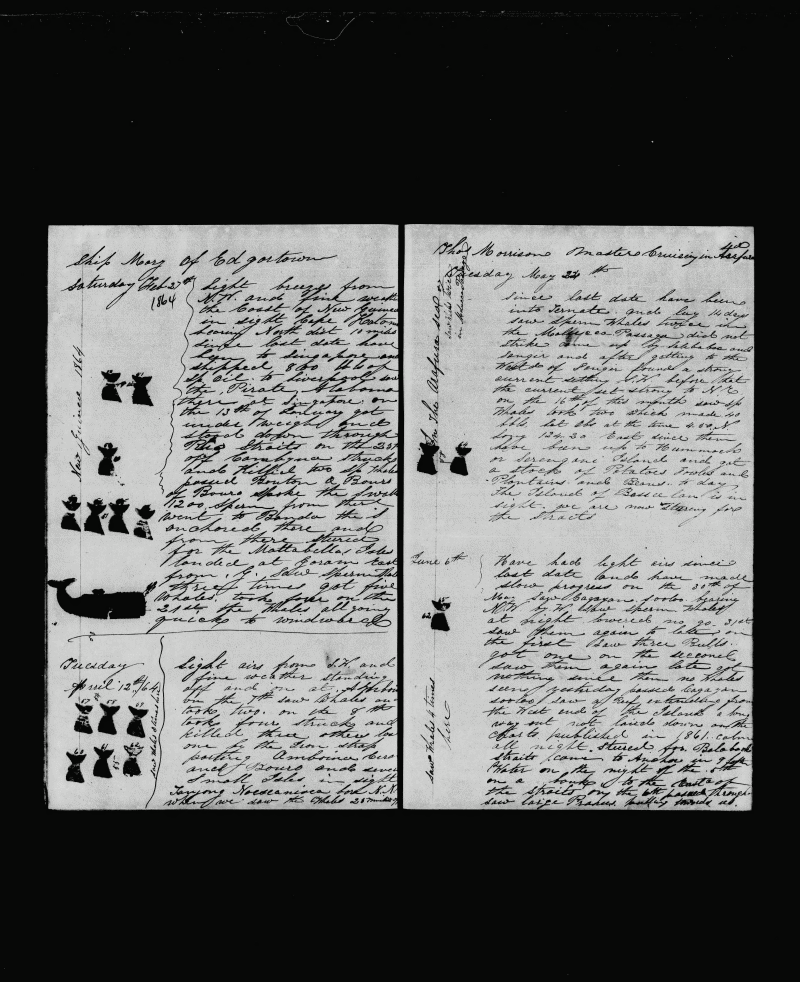 Ship Mary of Edgartown
Saturday Feb 27th
1864
Light breezes from
N.W. and fine weath
the Coast of New Guinea
in sight Cape
bearing North dist 10 miles
since last date have
been to Singapore and
shipped 860 bbls of
Sp Oil to Liverpool saw
the Pirate Alabama
there at Singapore on
the 13th of January got
under weigh and
stood down through
Straits on the 23d
off Cambyna struck
and killed two Sp Whales
passed Bouton & Bouro
of Bouro spoke the
1200 Sperm from there
went to Banda
anchored there and
from there steered
for the Mattabella Isles
landed at Goram East
from it. Saw Sperm
three times got five
Whales. took four on the
21st the Whales all going
quick to windward
New Guinea 1864
Tuesday
April 12th/64
Light airs from S.W. and
fine weather standing
off and on at
on the 7th saw Whales an
took two. on the 8th
took four struck and
killed three others lost
one by the Iron strap
parting Amboina
and Bouro and
small Isles in sight
bore N.W.
when we saw the Whales 25 miles
Thos Morrison Master Cruising in
Tuesday May 24th
Since last date have been
into Ternate and lay 14 days
saw Sperm Whales twice in
the Molucca Passage did not
strike come up by
Sanger and after getting to the
West of Sanger found a strong
current setting S.W. before that
the current set strong to N.E.
on the 16th of this month saw Sp
Whales took two which made 40
bbls. Lat Obs at the time 4.00 N
Long 124.30 East since then
have been up to Hummock
or Serangani Island and got
a stock of Potatoes Fowls and
Plantains and Beans. to day
the Island of Basseelan is in
sight. we are now steering for
the Straits
June 6th
Have had light airs since
last date and have made
slow progress on the 30th of
May saw Cagayan Sooloo bearing
N.W. by W. saw sperm Whales
at night lowered no go. 31st
saw them again to late on
the first saw three Bulls.
got one on the second
saw them again late got
nothing since then no Whales
seen yesterday passed Cagayan
Sooloo saw a Reef extending from
the West end of the Island a long
way out not laid down on the
Charts published in 1861. calm
all night. Steered for Balabac
Straits came to Anchor in 9 fath
Water on the night of the 5th
on a bank to the East of
the Straits, on the 6th passed through
saw large Proas pulling towards us.
saw Whales 4 times
here